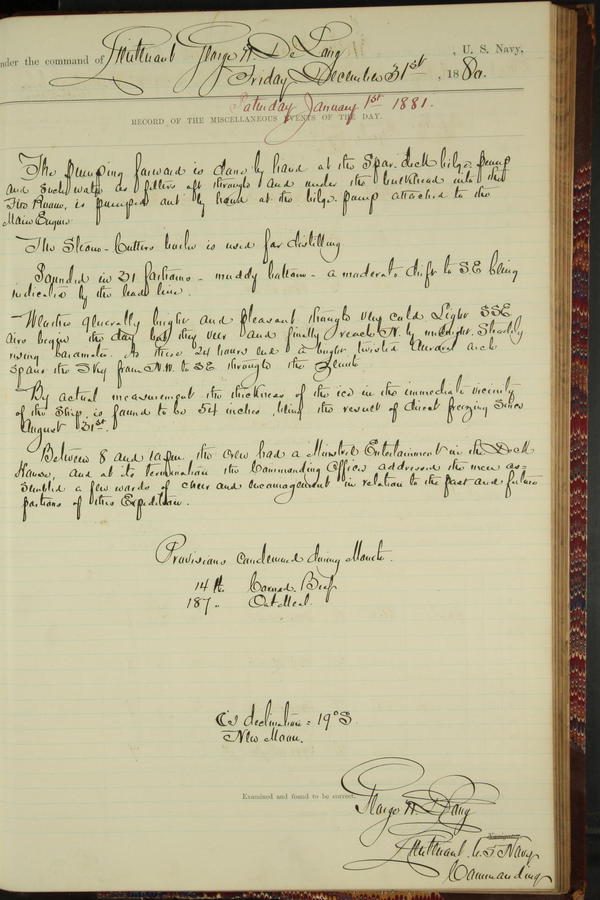 under the command of Lieutenant George W. De Long, U. S. Navy,
Friday December 31st, 1880.
Saturday January 1st 1881.
RECORD OF THE MISCELLANEOUS EVENTS OF THE DAY.
The pumping forward is done by hand at the Spar-deck bilge-pump
and such water as filters aft through and under the bulkhead into the
Fire Room, is pumped out by hand at the bilge pump attached to the
Main Engine.
The Steam-Cutters boiler is used for distilling
Sounded in 31 fathoms - muddy bottom - a moderate drift to SE being
indicated by the lead line.
Weather generally bright and pleasant though very cold. Light SSE
airs begin the day but they veer and finally reach N. by midnight. Steadily
rising barometer. As these 24 hours end a bright twisted Auroral arch
spans the Sky from N.W. to SE through the Zenith.
By actual measurement the thickness of the ice in the immediate vicinity
of the Ship, is found to be 54 inches, being the result of direct freezing since
August 31st.
Between 8 and 10 p.m. the crew had a Minstrel Entertainment in the Deck
House, and at its termination the Commanding Officer addressed the men as-
sembled a few words of cheer and encouragement in relation to the past and future
portions of this Expedition.
Provisions condemned during Month.
14 lb. Corned Beef
187 " Oat Meal.
☾'s declination = 19° S.
New Moon.
Examined and found to be correct.
George W. De Long
Navigator.
Lieutenant U. S. Navy
Commanding